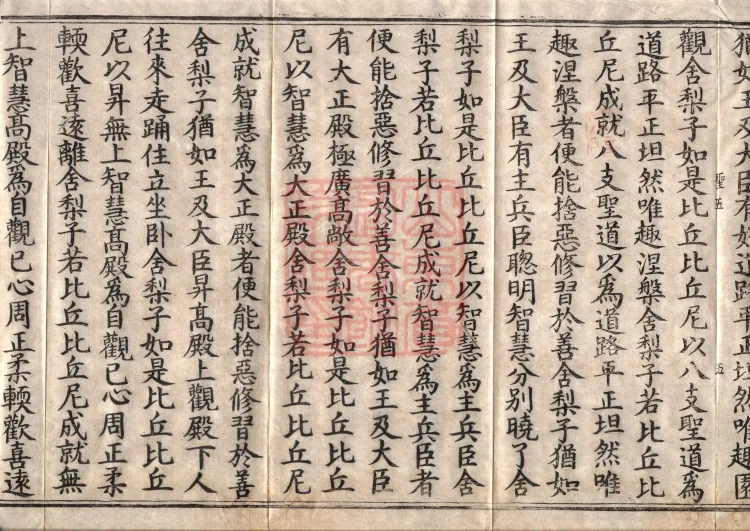 猶如王及大臣有好道路平正坦然唯趣園
觀舍梨子如是比丘比丘尼以八支聖道為
道路平正坦然唯趣涅槃舍梨子若比丘比
丘尼成就八支聖道以為道路平正坦然唯
趣涅槃者便能捨惡修習於善舍梨子猶如
王及大臣有主兵臣聰明智慧分別曉了舍
梨子如是比丘比丘尼以智慧為主兵臣舍
梨子若比丘比丘尼成就智慧為主兵臣者
便能捨惡修習於善舍梨子猶如王及大臣
有大正殿極廣高敞舍梨子如是比丘比丘
尼以智慧為大正殿舍梨子若比丘比丘尼
成就智慧為大正殿者便能捨惡修習於善
舍梨子猶如王及大臣昇高殿上觀殿下人
往來走踊住立坐卧舍梨子如是比丘比丘
尼以昇無上智慧高殿為自觀已心周正柔
輭歡喜遠離舍梨子若比丘比丘尼成就無
上智慧高殿為自觀已心周正柔輭歡喜遠
聖五
五